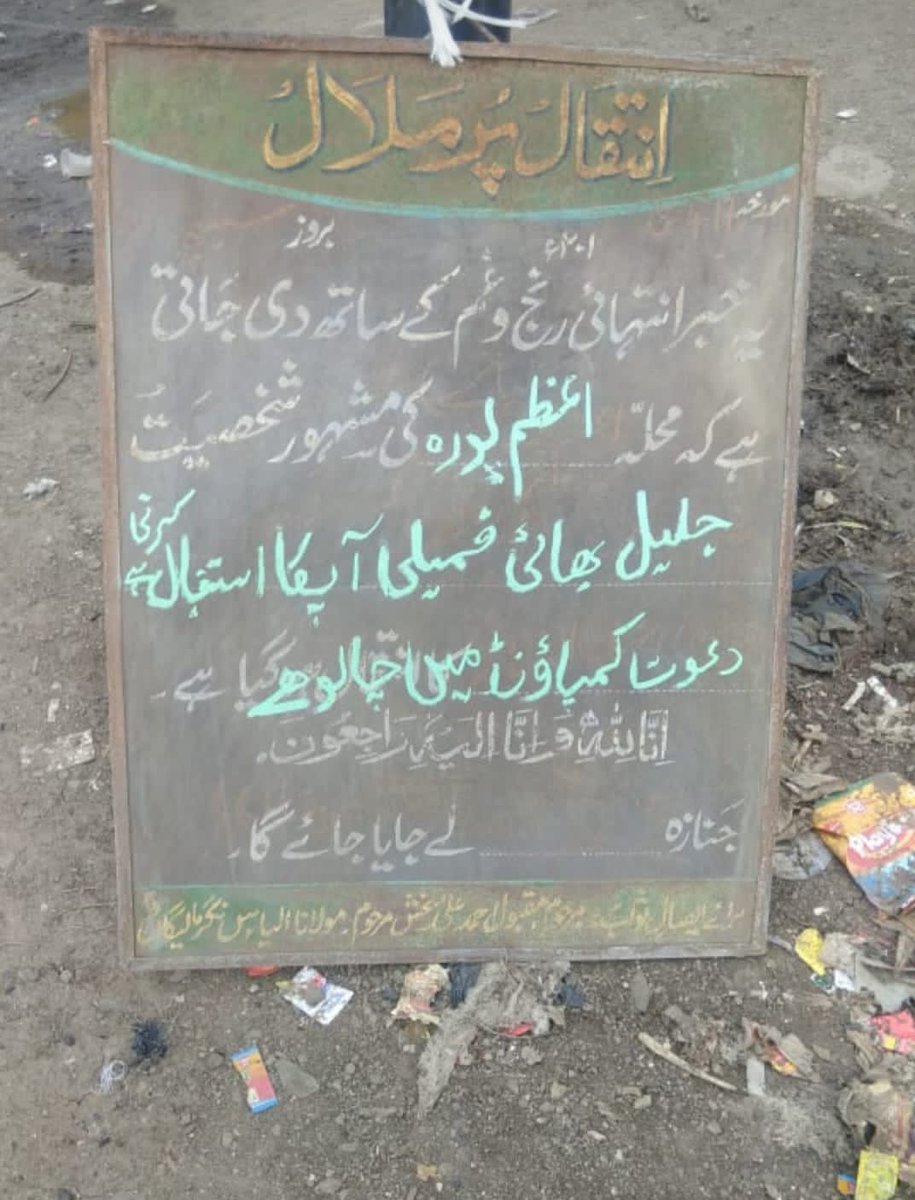 اِنتقَالُ پُر مَلَالُ
مورخہ
۲۰۱ء بروز
یہ خبر انتہائی رنج و غم کے ساتھ دی جاتی
ہے کہ محلّہ اعظم پورہ کی مشہور شخصیت
جلیل بھائی فمیلی آپکا استقبال کرتی ہے
دعوت کمپاؤنڈ میں اچالو ھے گیا ہے۔
اِنَّا لِلّٰہِ وَ اِنَّا اِلَیْہِ رَاجِعُونَ۔
جَنازہ لے جایا جائے گا۔
برائے ایصالِ ثواب: مرحوم مقبول احمد علی بخش مرحوم مولانا الیاس نگر مالیگاؤں